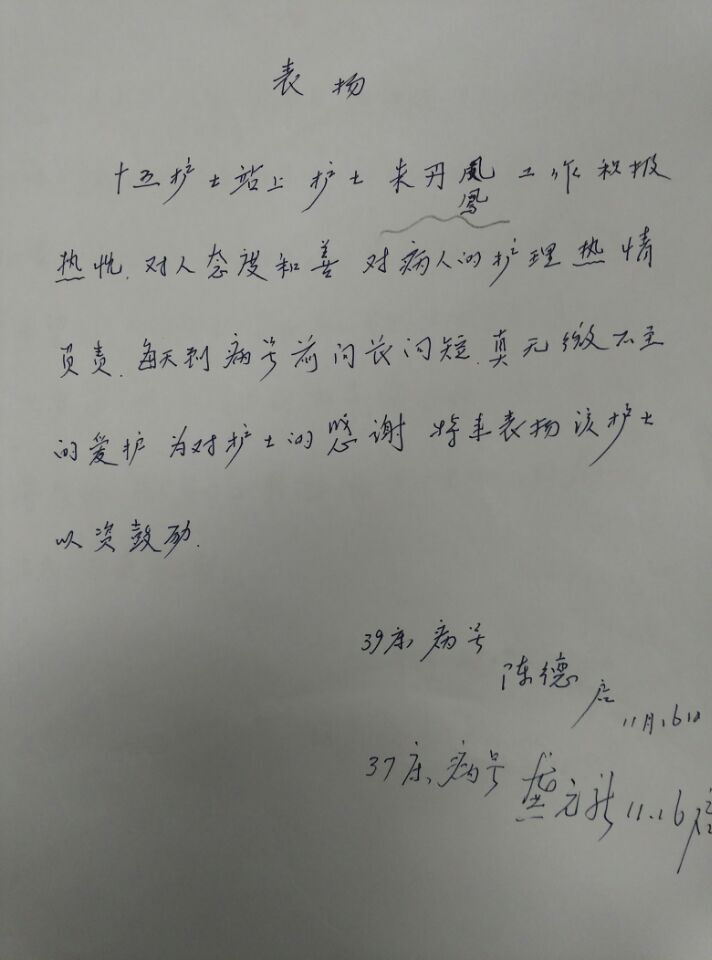 表扬
十五护士站上 护士 来丹凤 工作积极
鳳
热忱.对人态度和善 对病人的护理热情
负责.每天到病号前问长问短.真无微不至
的爱护 为对护士的感谢 特来表扬该护士
以资鼓励.
39床病号
陈德 启 11月16日
37床病号 龚元新 11.16启